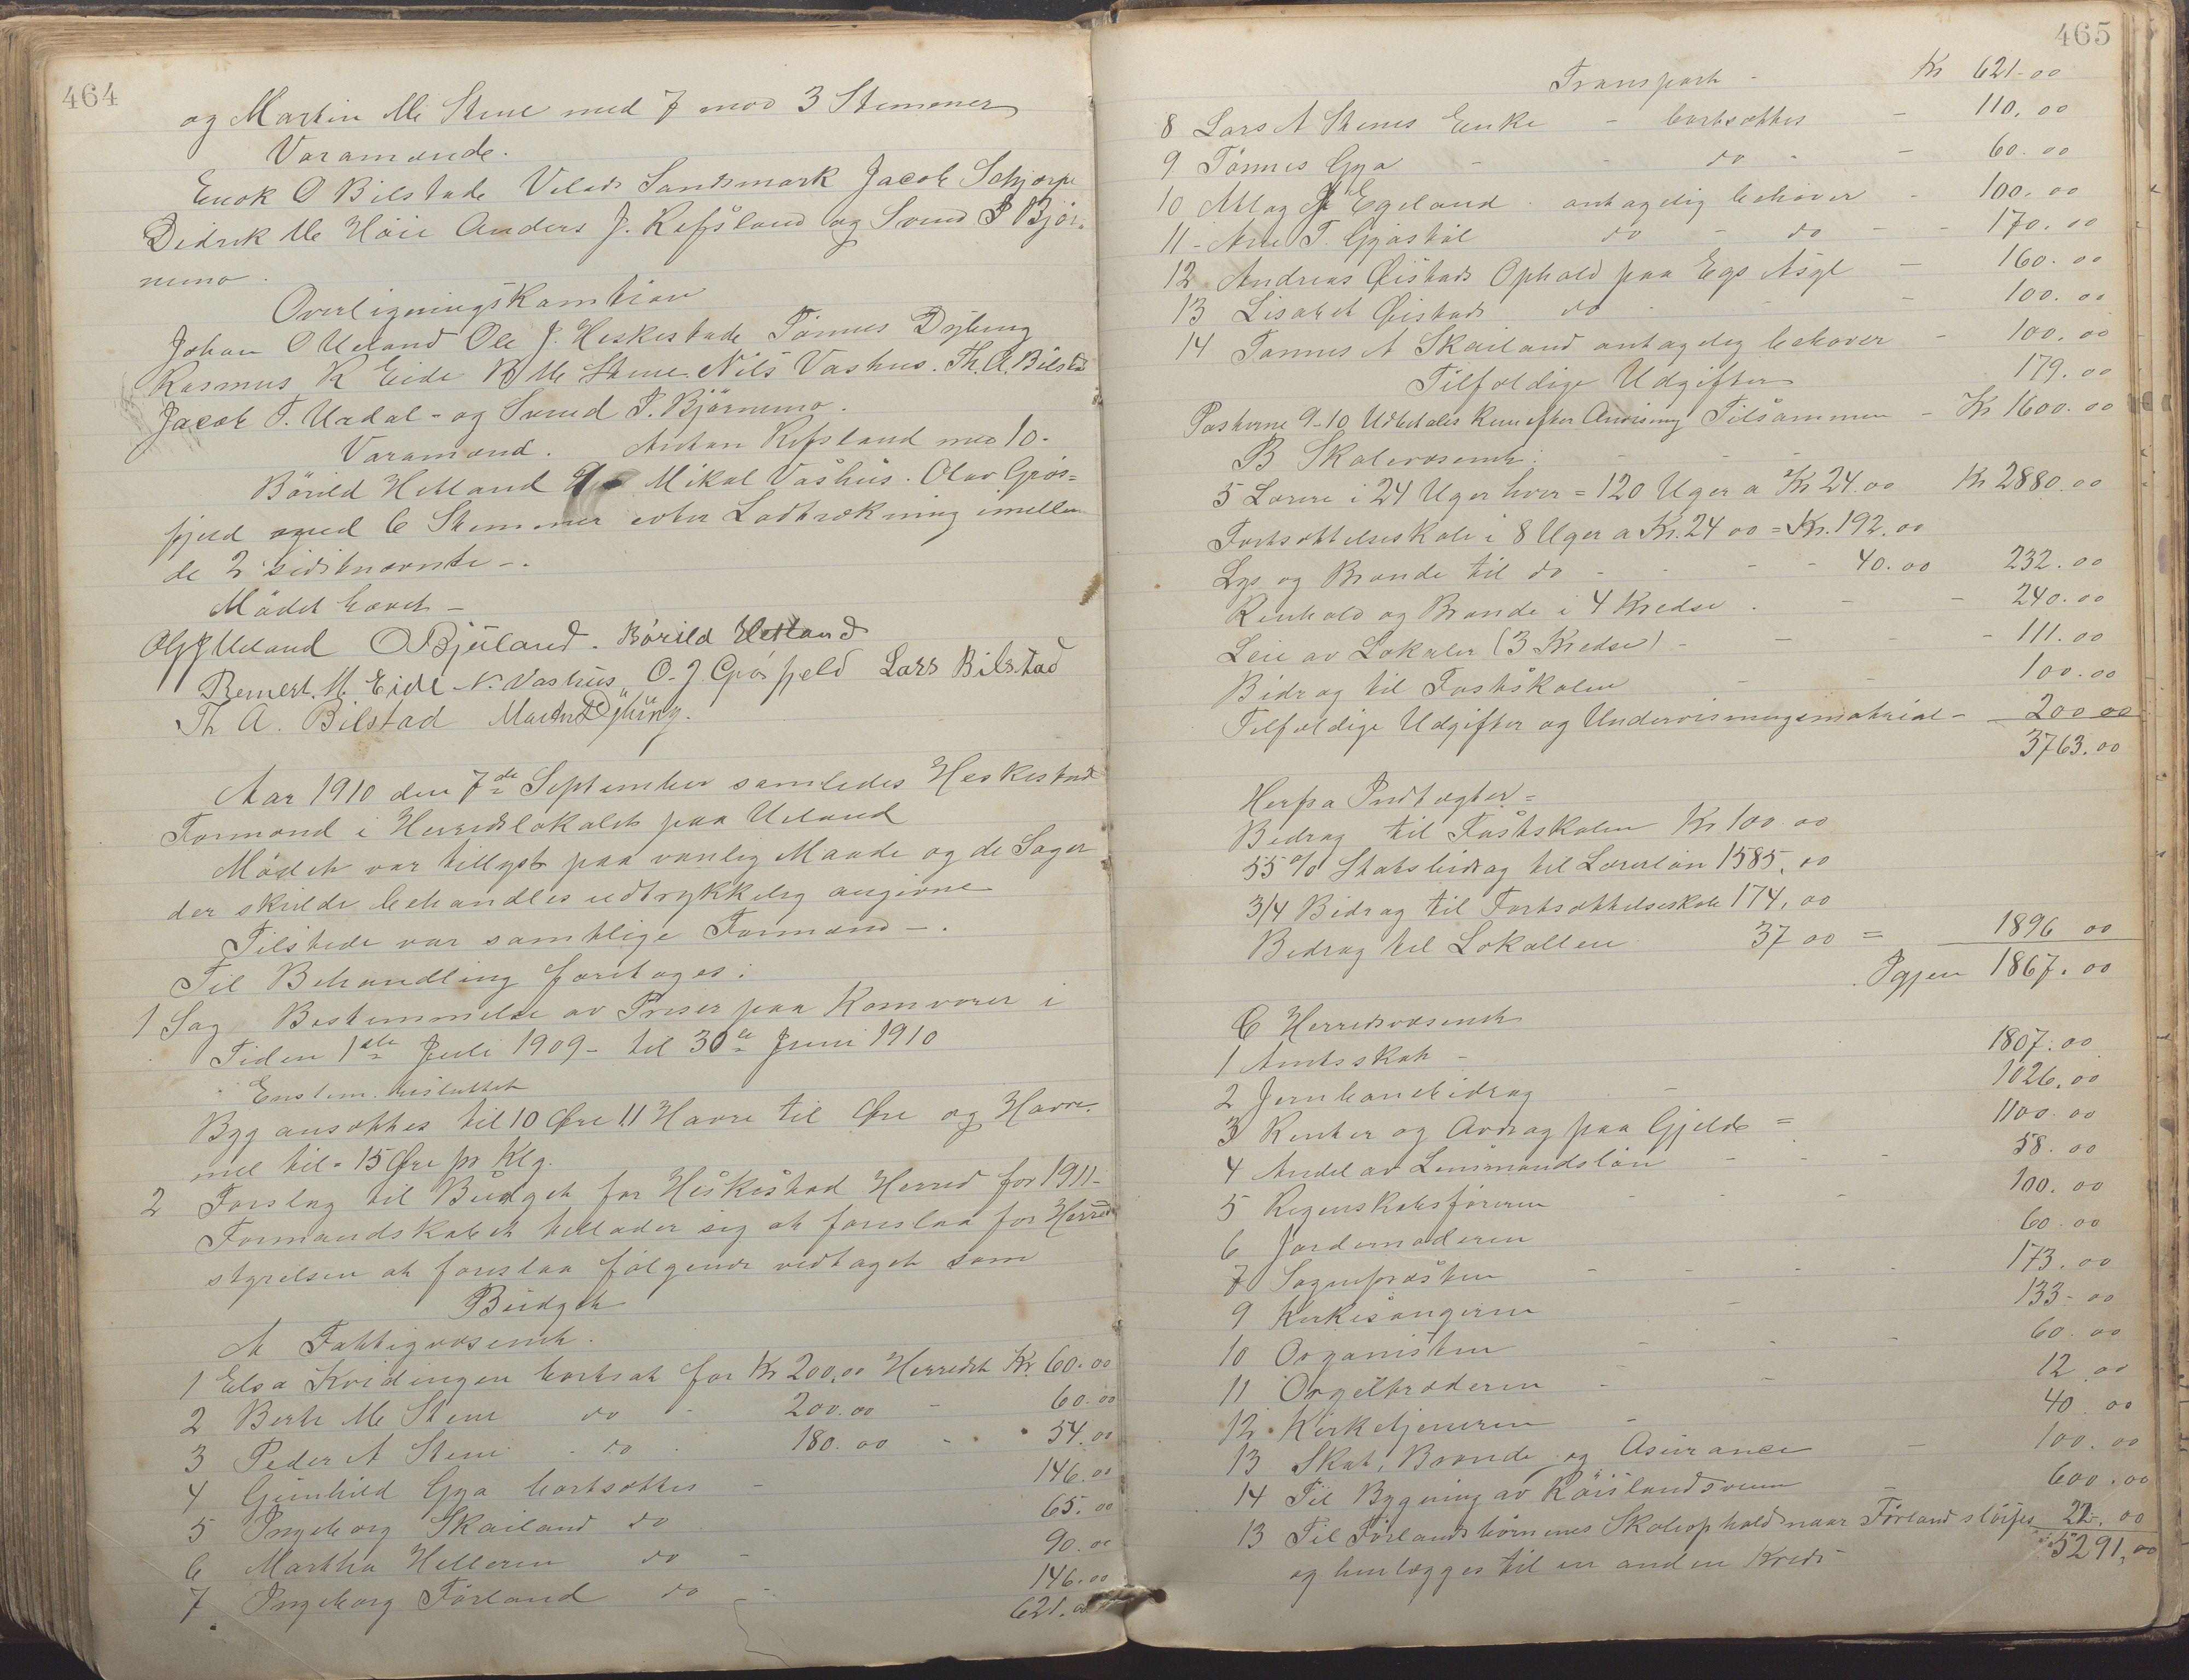 464
og Martin M. Stene med 7 mod 3 Stemmer
Varamænde.
Enok O Bilstade Velads Sandsmark Jacob Schjærpe
Didrik M Høie Anders J. Refsland og Svend P Bjør-
nemo.
Overligningskomtion
Johan O Ueland Ole J. Heskestade Tønnes Dybing
Rasmus R Eide R M Stene. Nils Vashus. Th. A. Bilstad
Jacob T. Urdal - og Svend P. Bjørnemo.
Varamænd. Anton Refsland med 10.
Bårild Hetland 9 Mikal Vashus. Olav Grøs=
fjeld med 6 Stemmer evter Lodtrækning imellem
de 2 sidstnævnte -.
Mødet hævet -
Ole J Ueland O Bjuland. Bårild Hetland
Bernert. M. Eide N. Vashus O. J. Grøsfjeld Lars Bilstad
Th A. Bilstad Martin Dybing.
Aar 1910 den 7de September samledes Heskestad
Formænd i Herredslokalet paa Ueland
Mødet var tillyst paa vanlig Maade og de Sager
der skulde behandles udtrykkelig angivne
Tilstede var samtlige Formænd -.
Til Behandling foretages:
1 Sag Bestemmelse av Priser paa Kornvarer i
Tiden 1ste Juli 1909 - til 30te Juni 1910
Enstem. besluttet
Byg ansættes til 10 Øre 11 Havre til Øre og Havre-
mel til - 15 Øre pr Klg.
2 Forslag til Budget for Heskestad Herred for 1911 -
Formandskabet tillader sig at foreslaa for Herreds
styrelsen at foreslaa følgende vedtaget som
Budget
A Fattigvæsenet.
1 Elsa Kvidingen bortsat for Kr 200,00 Herredet Kr. 60.00
2 Berte M Stene do - 200.00 - 60.00
3 Peder A Stene - do . 180.00 - 54.00
4 Gunhild Gya bortsættes - 146.00
5 Ingeborg Skailand do 65.00
6 Martha Helleren do - 90.00
7 Ingeborg Førland do - 146.00
621.00
465
Transport - Kr 621-00
8 Lars A Stenes Enke - bortsættes - 110.00
9 Tønnes Gya - - do - - 60.00
10 Atlag Egeland. antagelig behøver - 100.00
11 - Arne T. Gyastøl do - do - - 170.00
12 Andreas Øistads Ophold paa Egs Asyl - 160.00
13 Lisabet Øistads do - - 100.00
14 Tønnes A Skailand antagelig behøver - 100.00
Tilfældige Udgifter 179.00
Posterne 9-10 Udbetales kun efter Anvisning Tilsammen - Kr 1600.00
B Skolevæsenet: - - -
5 Lærere i 24 Uger hver = 120 Uger a Kr 24.00 Kr 2880.00
Fortsættelseskole i 8 Uger a Kr. 24 00 = Kr. 192.00
Lys og Brænde til do - - - - 40.00 232.00
Renhold og Brænde i 4 Kredse . - - 240.00
Leie av Lokaler (3 Kredse) - - - 111.00
Bidrag til Fastskolen - - 100.00
Tilfældige Udgifter og Undervisningsmaterial - 200 00
3763.00
Herfra Indtægter =
Bidrag til Fastskolen Kr 100.00
55 % Statsbidrag til Lærerløn 1585.00
3/4 Bidrag til Fortsættelseskole 174,00
Bidrag til Lokalleie 37 00 = 1896 00
Igjen 1867.00
C Herredsvæsenet
1 Amtsskat - 1807.00
2 Jernbanebidrag - 1026.00
3 Renter og Avdrag paa Gjeld = 1100.00
4 Andel av Lensmandsløn - - - 58.00
5 Regenskabsføreren - - - 100.00
6 Jordemoderen 60.00
7 Sognepræsten - - - - 173.00
9 Kirkesangeren - 133-00
10 Organisten - - - 60.00
11 Orgeltræderen - - 12.00
12 Kirketjeneren - 40.00
13 Skat, Brænde og Asurance - 100.00
14 Til Bygning av Røislandsveien - 600.00
13 Til Førlandsbørnenes Skoleophold naar Førland sløifes 22.00
og henlægges til en anden Kreds 5291,00